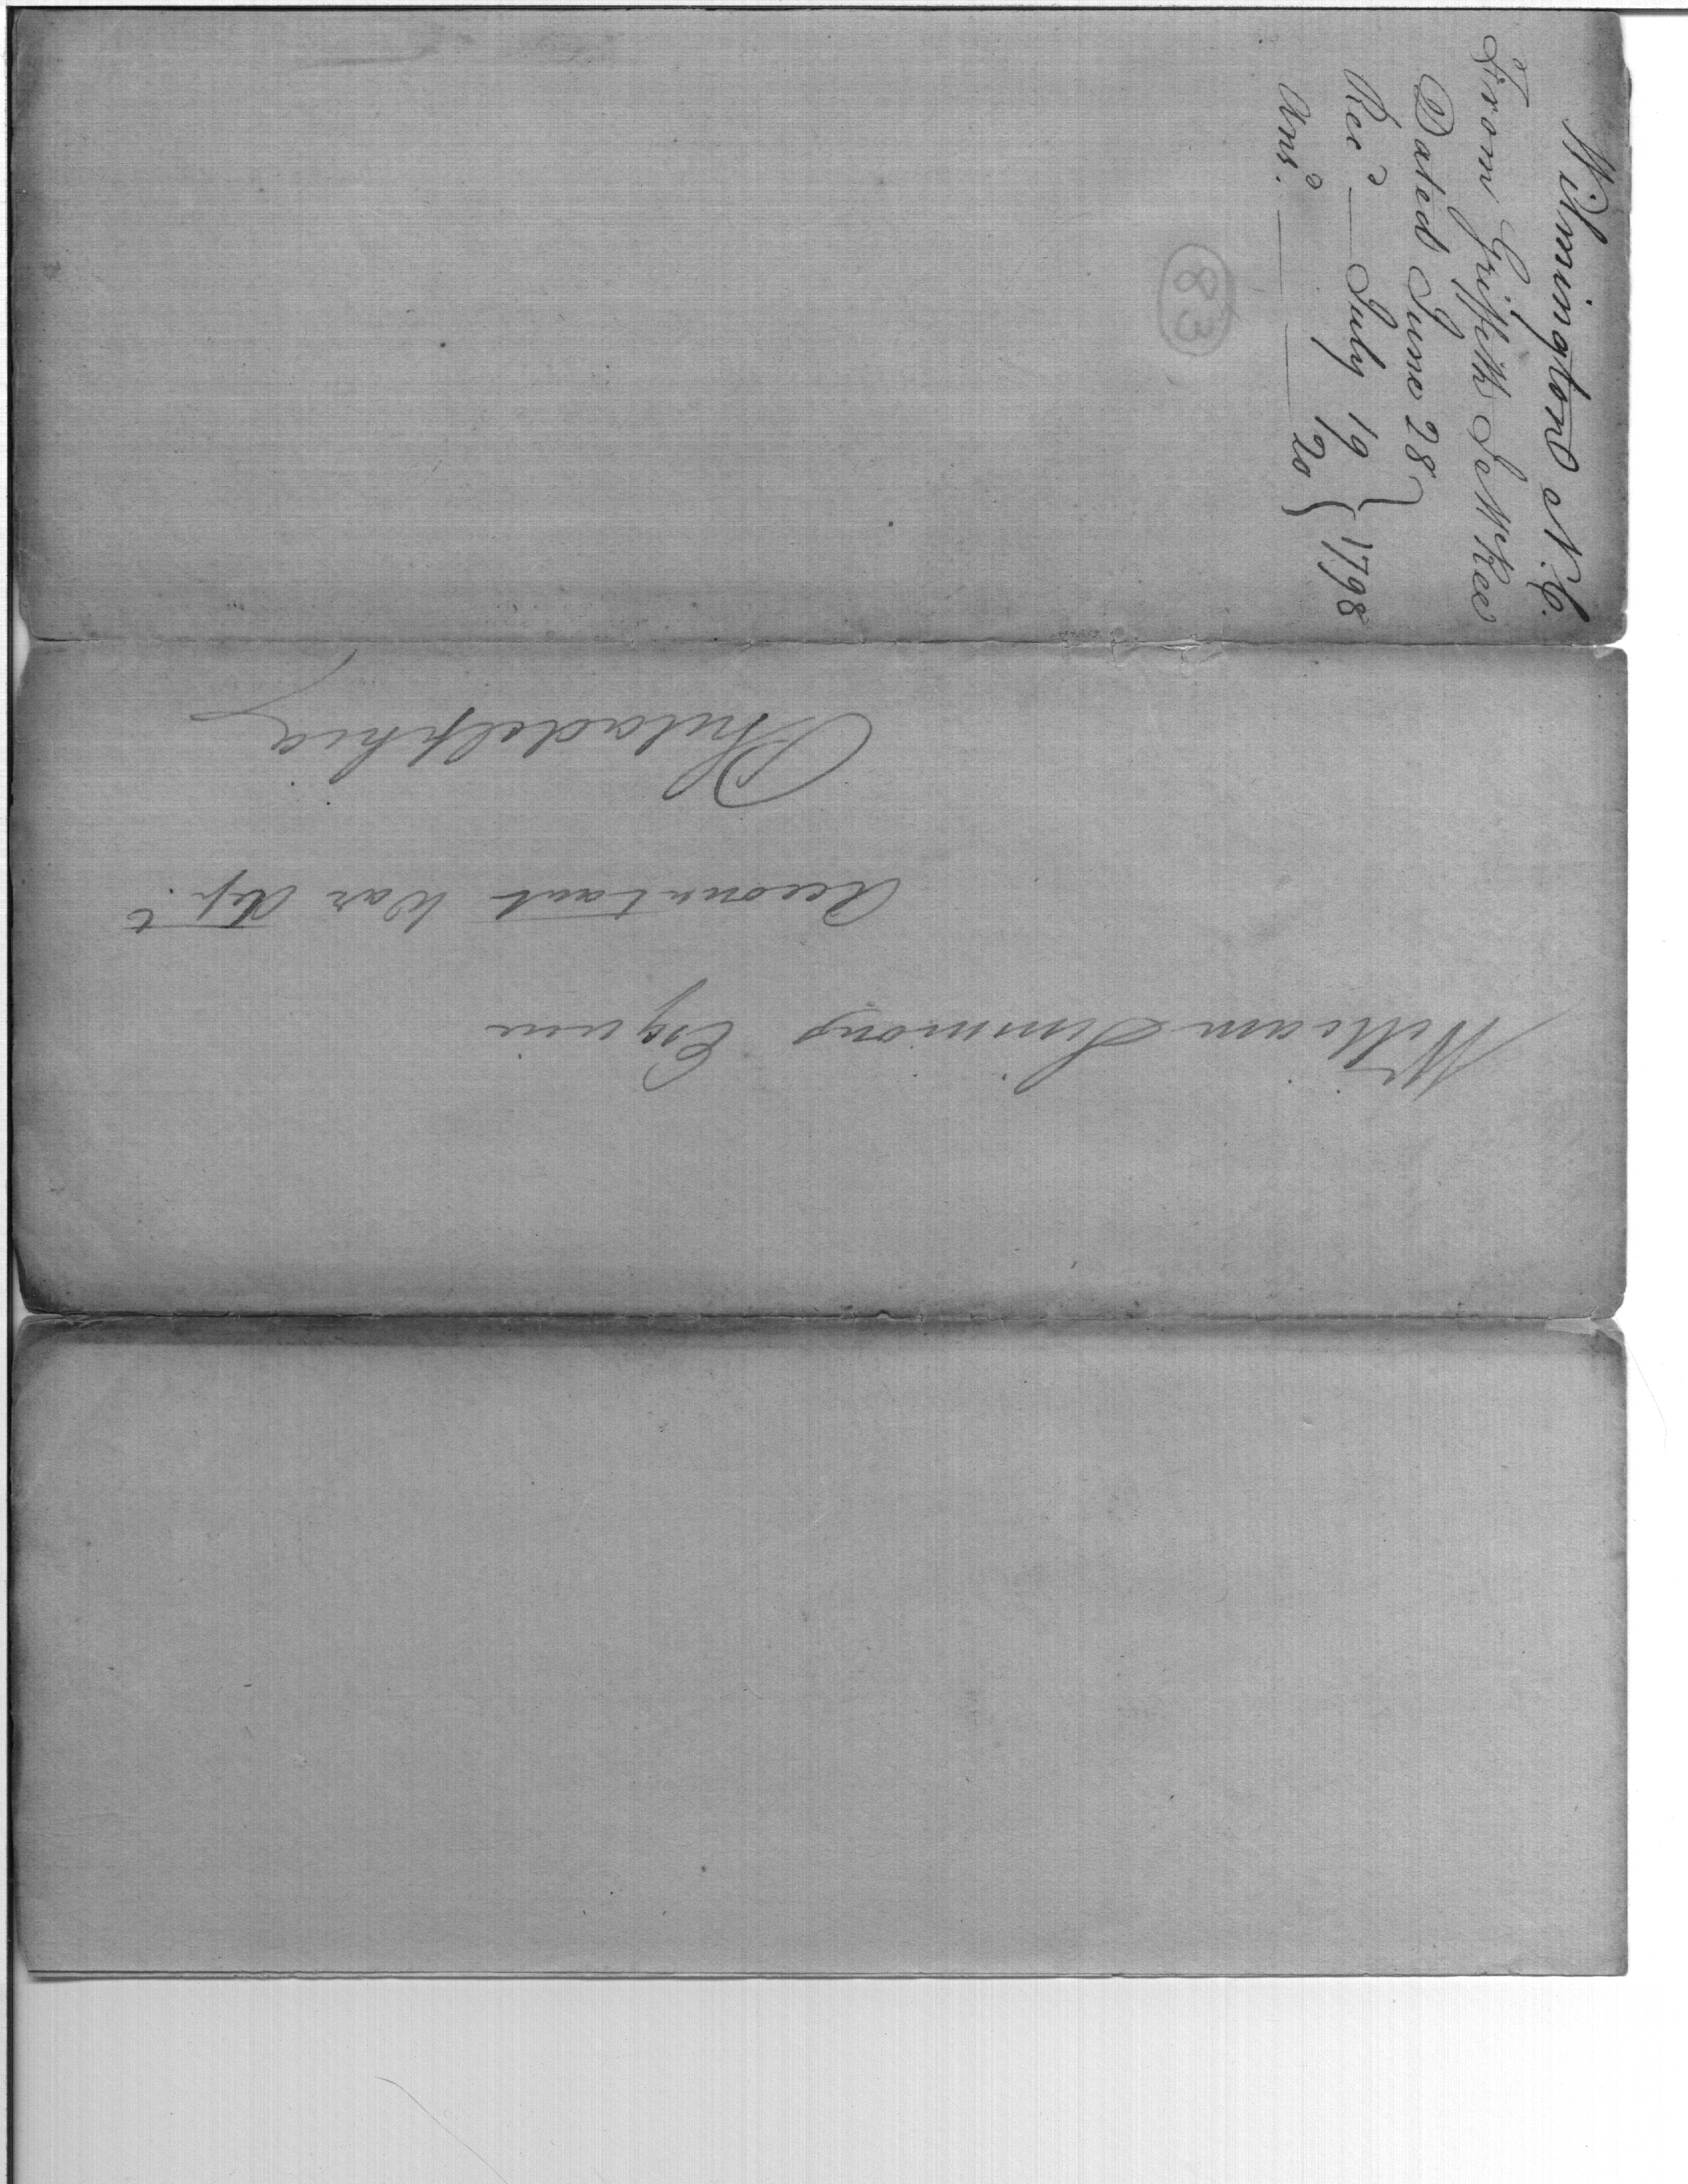 Wilmington N.C.
From Griffith J McRee
Dated June 28
Rec'd — July 19 } 1798
Ans'd. — 20
83
William Simmons Esquire
Accountant War Dep.t
Philadelphia